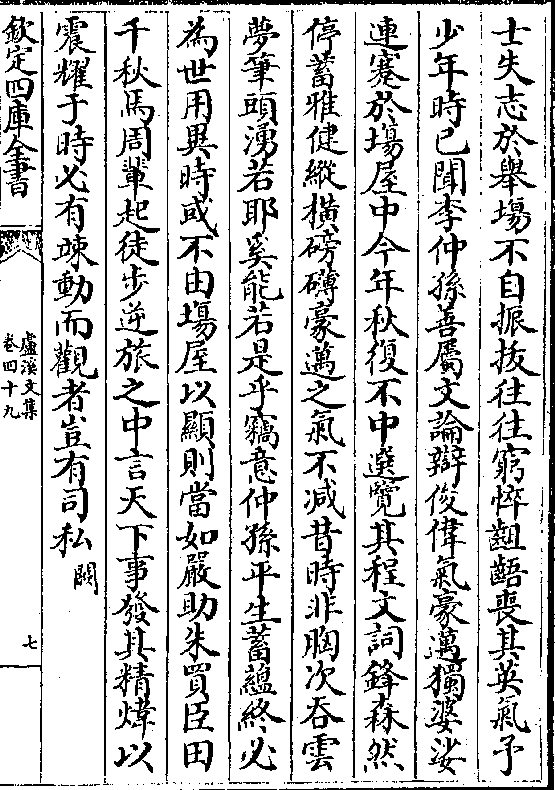 士失志於舉塲不自振拔往往窮悴齟齬喪其英氣予
少年時已聞李仲孫善屬文論辯俊偉氣豪邁獨婆娑
連蹇於塲屋中今年秋復不中選覽其程文詞鋒森然
停蓄雅健縱橫磅礴豪邁之氣不減昔時非胸次吞雲
夢筆頭湧若耶奚能若是乎竊意仲孫平生蓄藴終必
為世用異時或不由塲屋以顯則當如嚴助朱買臣田
千秋馬周輩起徒步逆旅之中言天下事發其精煒以
震耀于時必有竦動而觀者豈有司私闕
欽定四庫全書
盧溪文集
卷四十九
七